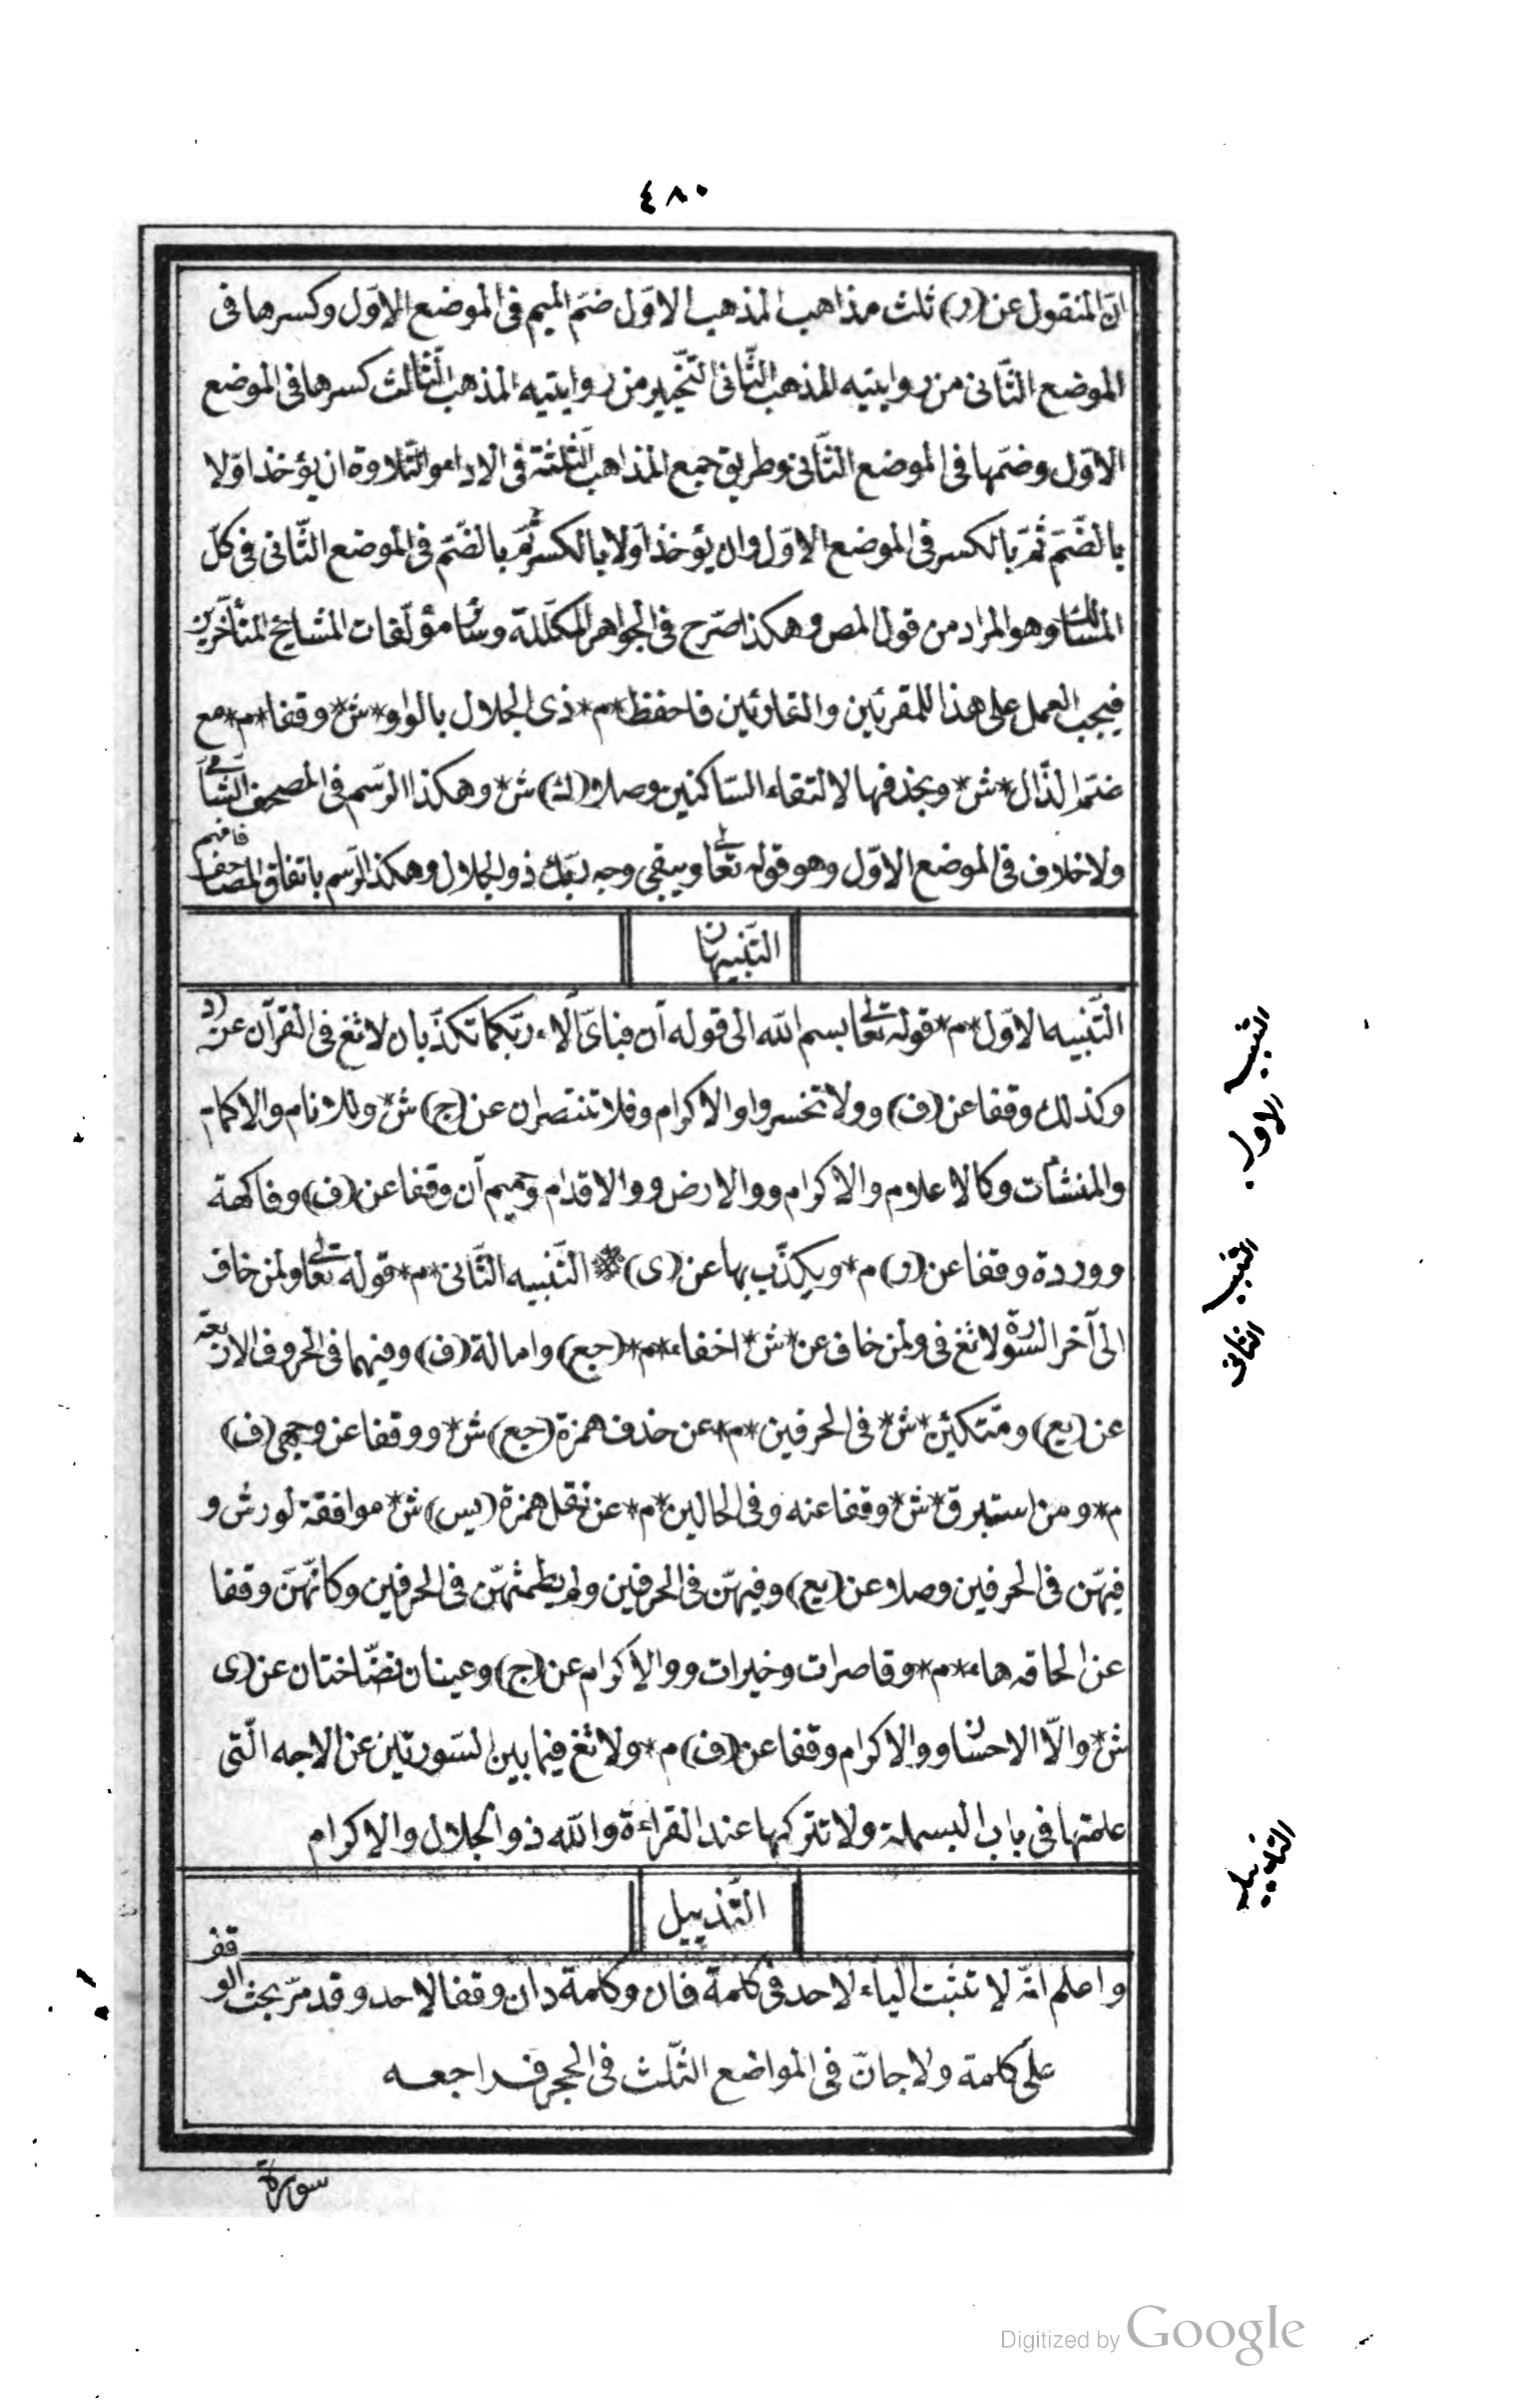 ٤٨٠
انّ المنقول عن (ر) ثلث مذاهب المذهب الاوّل ضمّ الميم فى الموضع الاوّل وكسرها فى
الموضع الثّانى من روايتيه المذهب الثّانى التّخيير من روايتيه المذهب الثّالث كسرها فى الموضع
الاوّل وضمّها فى الموضع الثّانى وطريق جمع المذاهب الثّلثة فى الاداء والتّلاوة ان يؤخذ اوّلا
بالضّمّ ثمّ بالكسر فى الموضع الاوّل وان يؤخذ اوّلا بالكسر ثمّ بالضّمّ فى الموضع الثّانى فى كلّ
المسالك وهو المراد من قول المص وهكذا صرّح فى الجواهر المكلّلة وسائر مؤلّفات المشايخ المتأخّرين
فيجب العمل على هذا للمقرئين والقارئين فاحفظ *م* ذى الجلال بالواو *ش* وقفا *م* مع
ضمّ الذّال *ش* وبحذفها لالتقاء السّاكنين وصلا (ك) ش* وهكذا الرّسم فى المصحف الشّامى
ولا خلاف فى الموضع الاوّل وهو قوله تعالى ويبقى وجه ربّك ذو الجلال وهكذا الرّسم باتفاق المصاحف فافهم
التّنبيهان
التّنبيه الاوّل *م* قوله تعالى بسم الله الى قوله آن فباىّ آلاء ربّكما تكذّبان لا تغ فى القرآن عن (د)
وكذلك وقفا عن (ف) وولا تخسروا والاكرام وفلا تنتصران عن (ج) ش* وللانام والاكمام
والمنشآت وكالاعلام والاكرام ووالارض ووالاقدام وحميم آن وقفا عن (ف) وفاكهة
ووردة وقفا عن (ر) م* ويكذّب بها عن (ى) * التّنبيه الثّانى *م* قوله تعالى ولمن خاف
الى آخر السّورة لا تغ فى ولمن خاف عن *ش* اخفاء *م* (جع) وامالة (ف) وفيهما فى الحروف الاربعة
عن (يع) ومتّكئين *ش* فى الحرفين *م* عن حذف همزة (جع) ش* ووقفا عن وجهى (ف)
م* ومن استبرق *ش* وقفا عنه وفى الحالين *م* عن نقل همزة (يس) ش* موافقة لورش و
فيهنّ فى الحرفين وصلا عن (يع) وفيهنّ فى الحرفين ولم يطمثهنّ فى الحرفين وكانّهنّ وقفا
عن الحاقه هاء *م* وقاصرات وخيرات ووالاكرام عن (ج) وعينان نضّاختان عن (ى)
ش* والّا الاحسان ووالاكرام وقفا عن (ف) م* ولا تغ فيما بين السّورتين عن الاجه الّتى
علمتها فى باب البسملة ولا تتركها عند القراءة والله ذو الجلال والاكرام
التّذييل
واعلم انّه لا تثبت الياء لاحد فى كلمة فان وكلمة دان وقفا لاحد وقد مرّ بحث الوقف
على كلمة ولا جانّ فى المواضع الثّلث فى الحجر فراجعه
سورة
التنبيه الاول
التنبيه الثانى
التذييل
Digitized by Google